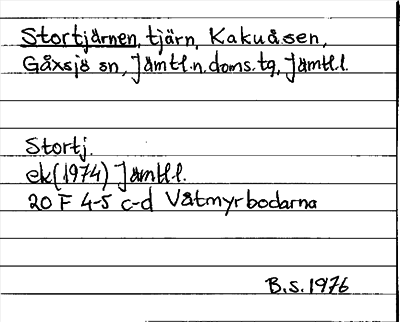 Stortjärnen, tjärn, Kakuåsen,
Gåxsjö sn, Jämtl.n.doms.tg, Jämtl.l.
Stortj.
ek(1974) Jämtl.l.
20 F 4-5 c-d Våtmyrbodarna
B.S.1976